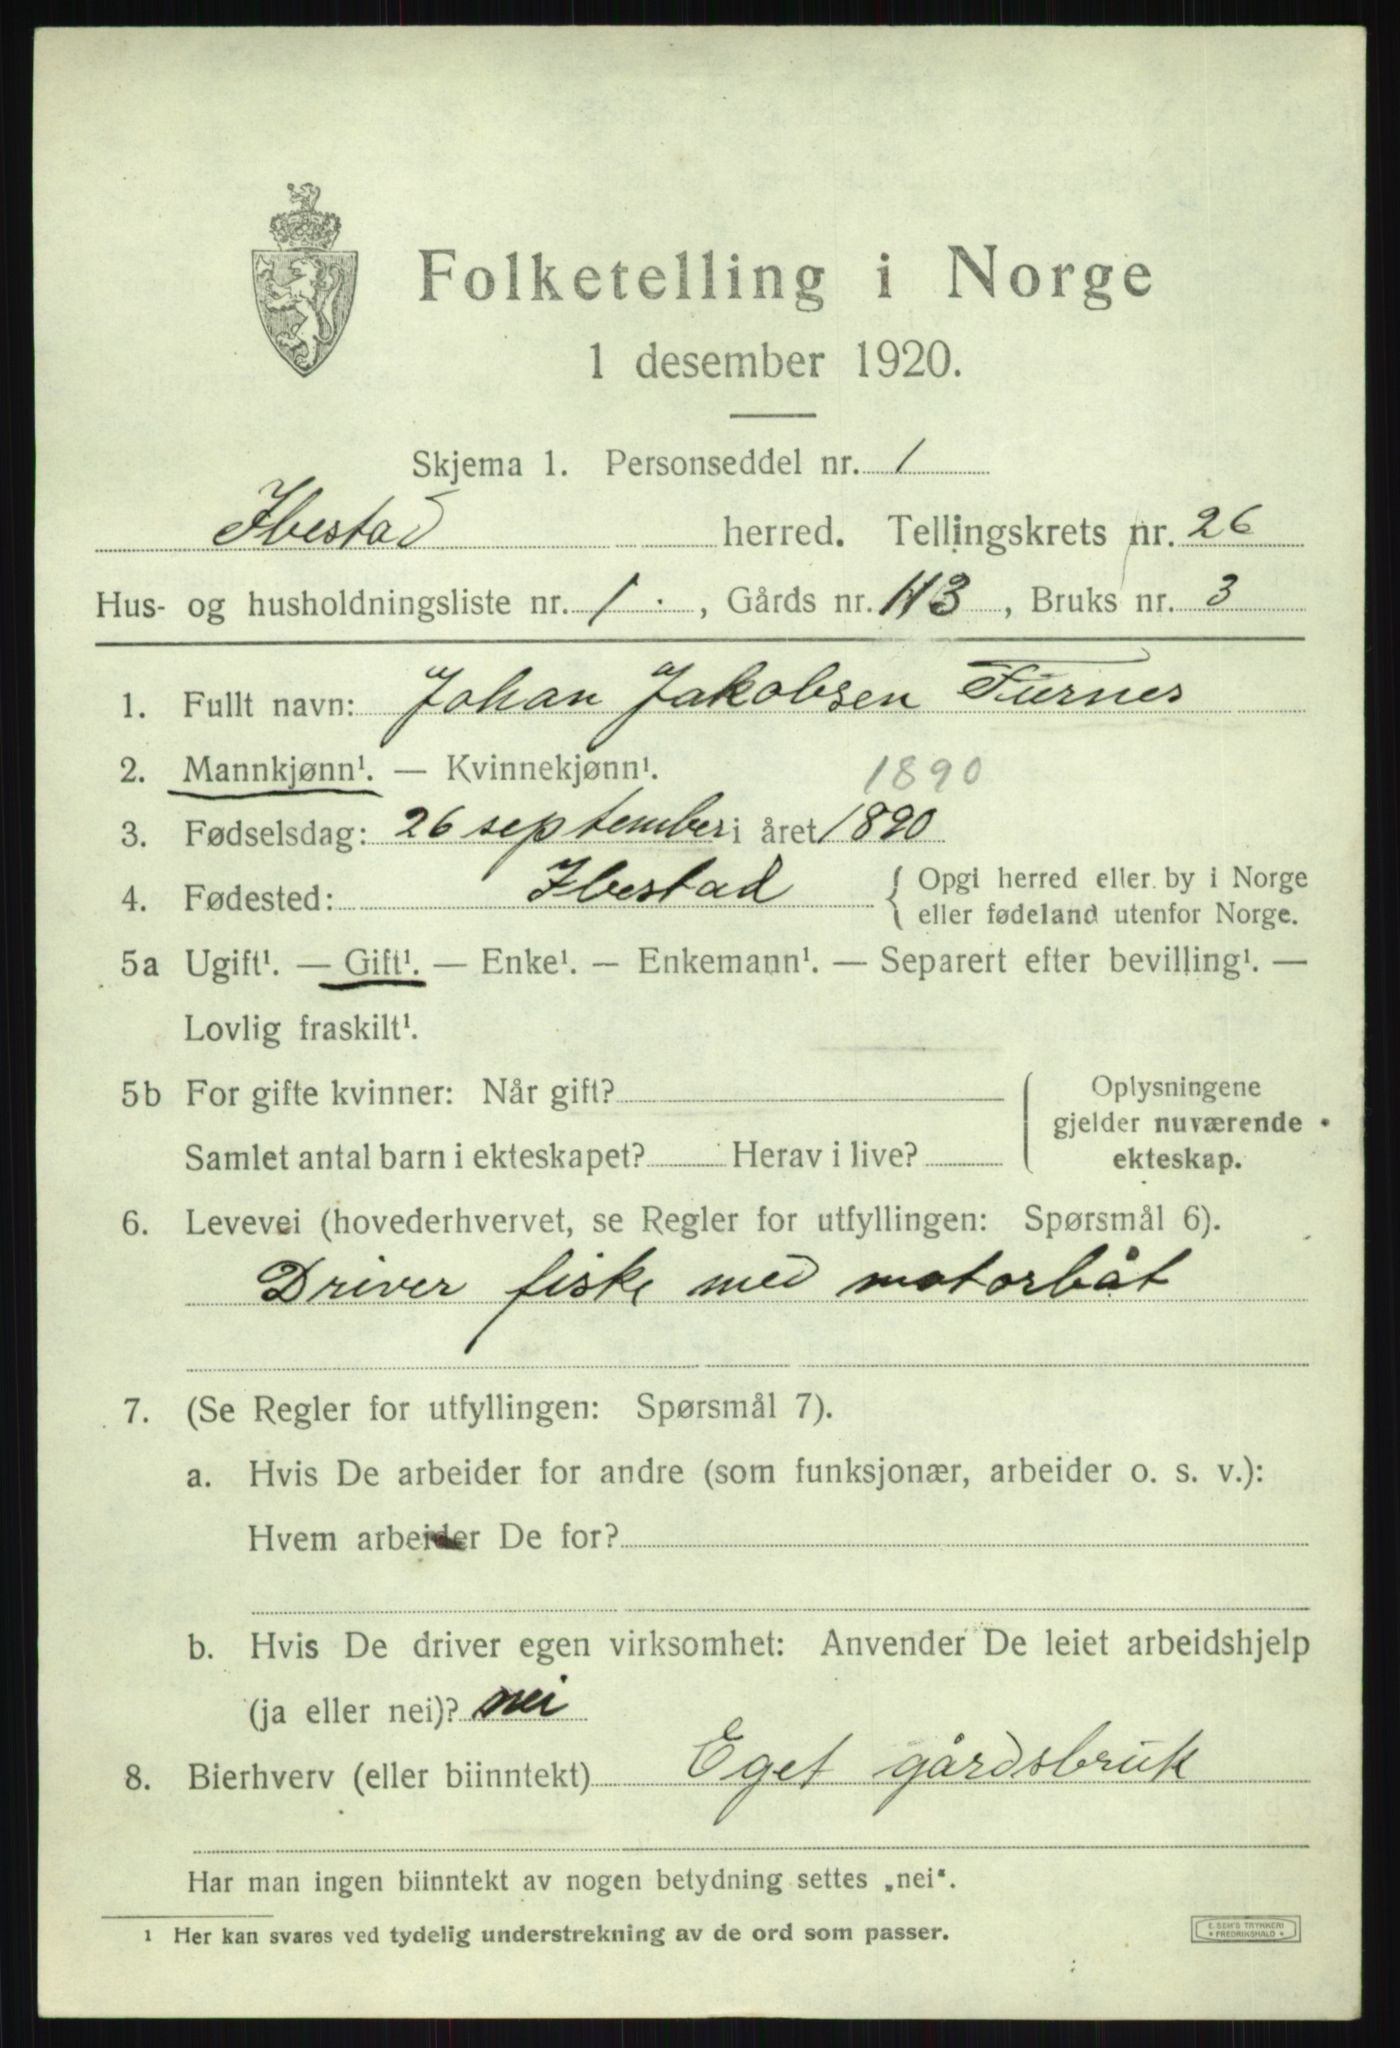 Folketelling i Norge
1 desember 1920.
Skjema 1. Personseddel nr. 1
Ibestad herred. Tellingskrets nr. 26
Hus- og husholdningsliste nr. 1. , Gårds nr. 113 , Bruks nr. 3
1. Fullt navn: Johan Jakobsen Furnes
2. Mannkjønn¹. — Kvinnekjønn¹. 1890
3. Fødselsdag: 26 september i året 1890
4. Fødested: Ibestad { Opgi herred eller by i Norge
eller fødeland utenfor Norge.
5a Ugift¹. — Gift¹. — Enke¹. — Enkemann¹. — Separert efter bevilling¹. —
Lovlig fraskilt¹.
5b For gifte kvinner: Når gift? Oplysningene
gjelder nuværende
Samlet antal barn i ekteskapet? Herav i live? ekteskap.
6. Levevei (hovederhvervet, se Regler for utfyllingen: Spørsmål 6).
Driver fiske med motorbåt
7. (Se Regler for utfyllingen: Spørsmål 7).
a. Hvis De arbeider for andre (som funksjonær, arbeider o. s. v.):
Hvem arbeider De for?
b. Hvis De driver egen virksomhet: Anvender De leiet arbeidshjelp
(ja eller nei)? nei
8. Bierhverv (eller biinntekt) Eget gårdsbruk
Har man ingen biinntekt av nogen betydning settes „nei“.
1 Her kan svares ved tydelig understrekning av de ord som passer.
E. SEM'S TRYKKERI
* FREDRIKSHALD *